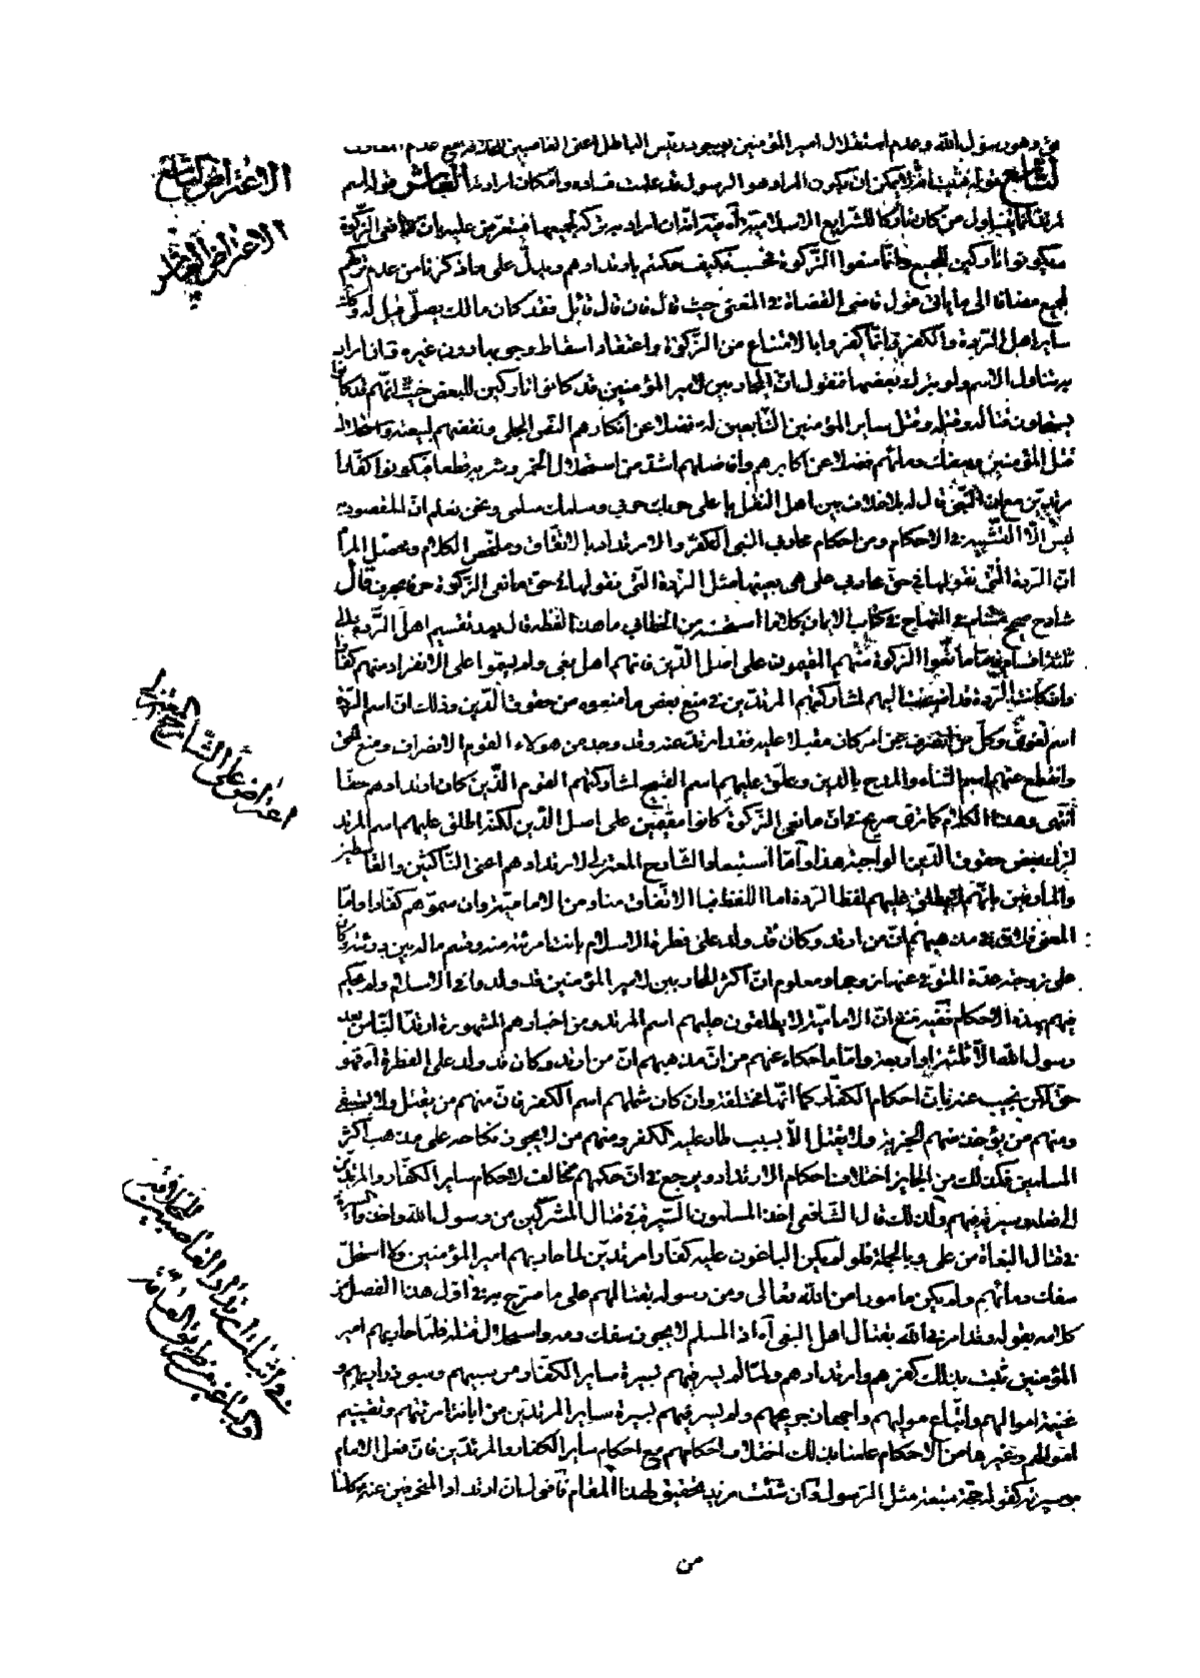 حق وهو رسول الله وعدم استقلال امير المؤمنين بوجود رئيس الباطل اعنى الغاصبين للخلافة مع عدم
التاسع قوله فثبت انه لا يمكن ان يكون المراد هو الرسول قد علمت فساده وامكان ارادته العاشر قوله اسم
المرتد انما يتناول من كان تاركا للشرايع الاسلامية آه فيه انه ان اراد به تركه لجميعها فيتعرض عليه بان مانعى الزكوة
لم يكونوا تاركين للجميع وانما منعوا الزكوة فحسب فكيف حكمتم بارتدادهم ويدل على ما ذكرنا من عدم تركهم
للجميع مضافا الى ما يأتى قول قاضى القضاة فى المغنى حيث قال فان قال قائل فقد كان مالك يصلى قيل له وكذلك
ساير اهل الردة والكفر وانما كفروا بالامتناع من الزكوة واعتقاد اسقاط وجوبها دون غيره فان اراد
به يتناول الاسم ولو بترك بعضها فنقول ان المحاربين لامير المؤمنين قد كانوا تاركين للبعض حيث انهم قد كانوا
يستحلون قتاله وقتله وقتل ساير المؤمنين التابعين له فضلا عن انكارهم النص الجلى ونقضهم لبيعته واستحلال
قتل المؤمنين وسفك دمائهم فضلا عن اكابرهم وافاضلهم اشد من استحلال الخمر وشربه قطعا فيكونوا كفارا
مرتدين مع ان النبى قال له بلا خلاف بين اهل النقل يا على حربك حربى وسلمك سلمى ونحن نعلم ان المقصود به
ليس الا التشبيه فى الاحكام ومن احكام محاربى النبى الكفر والارتداد بالاتفاق وملخص الكلام ومحصل المرام
ان الردة التى نقولها فى حق محاربى على هى بعينها مثل الردة التى نقولها فى حق مانعى الزكوة حرفا بحرف قال
شارح صحيح مسلم فى المنهاج فى كتاب الايمان كلاما استحسنه من الخطابى ما هذا لفظه قال بعد تقسيم اهل الردة الى
ثلثة اقسام فاما مانعوا الزكوة منهم المقيمون على اصل الدين فانهم اهل بغى ولم يسموا على الانفراد منهم كفارا
وان كانت الردة قد اضيفت اليهم لمشاركتهم المرتدين فى منع بعض ما منعوه من حقوق الدين وذلك ان اسم الردة
اسم لغوى وكل من انصرف عن امر كان مقبلا عليه فقد ارتد عنه وقد وجد من هولاء القوم الانصراف ومنع الحق
وانقطع عنهم اسم الثناء والمدح بالدين وعلق عليهم اسم القبيح لمشاركتهم القوم الذين كان ارتدادهم حقا
انتهى وهذا الكلام كما ترى صريح فى ان مانعى الزكوة كانوا مقيمين على اصل الدين لكنه اطلق عليهم اسم المرتد
لترك بعض حقوق الدين الواجبة هذا واما استبعاد الشارح المعتزلى لارتدادهم اعنى الناكثين والقاسطين
والمارقين بانهم لا يطلق عليهم لفظ الردة اما اللفظ فبالاتفاق منا ومن الامامية وان سموهم كفارا واما
المعنى فلان فى مذهبهم ان من ارتد وكان قد ولد على فطرة الاسلام بانت امرئته منه وقسم ماله بين ورثته وكان
على زوجته عدة المتوفى عنها زوجها ومعلوم ان اكثر المحاربين لامير المؤمنين قد ولدوا فى الاسلام ولم يحكم
فيهم بهذه الاحكام ففيه منع ان الامامية لا يطلقون عليهم اسم المرتد ومن اخبارهم المشهورة ارتد الناس بعد
رسول الله الا ثلثة او اربعة واما ما حكاه عنهم من ان مذهبهم ان من ارتد وكان قد ولد على الفطرة آه فهو
حق لكن نجيب عنه بان احكام الكفار كما انها مختلفة وان كان شملهم اسم الكفر فان منهم من يقتل ولا يستبقى
ومنهم من يؤخذ منهم الجزية ولا يقتل الا بسبب طار عليه الكفر ومنهم من لا يجوز نكاحه على مذهب اكثر
المسلمين فكذلك من الجايز اختلاف احكام الارتداد ويرجع فى ان حكمهم مخالف لاحكام ساير الكفار والمرتدين
الى فعله وسيرته فيهم ولذلك قال الشافعى اخذ المسلمون السيرة فى قتال المشركين من رسول الله واخذوا السيرة
فى قتال البغاة من على وبالجملة فلو لم يكن الباغون عليه كفارا مرتدين لما حاربهم امير المؤمنين ولا استحل
سفك دمائهم ولم يكن مامورا من الله تعالى ومن رسوله بقتالهم على ما صرح به فى اول هذا الفصل من
كلامه بقوله وقد امرنى الله بقتال اهل البغى آه اذ المسلم لا يجوز سفك دمه واستحلال قتله فلما حاربهم امير
المؤمنين ثبت بذلك كفرهم وارتدادهم ولما لم يسر فيهم بسيرة ساير الكفار من سبيهم وسبى ذراريهم و
غنيمة اموالهم واتباع موليهم واجهاز جريحهم ولم يسر فيهم بسيرة ساير المرتدين من ابانة امرئتهم وتقسيم
اموالهم وغيرها من الاحكام علمنا بذلك اختلاف احكامهم مع احكام ساير الكفار والمرتدين فان فعل الامام
وسيرته كقوله حجة متبعة مثل الرسول وان شئت مزيد تحقيق لهذا المقام فاقول ان ارتداد المنحرفين عنه كان
من
الاعتراض التاسع
الاعتراض العاشر
اعتراض على الشارح المعتزلى
فى اثبات ارتداد الغاصبين للخلافة
والباغين من طريق العامة